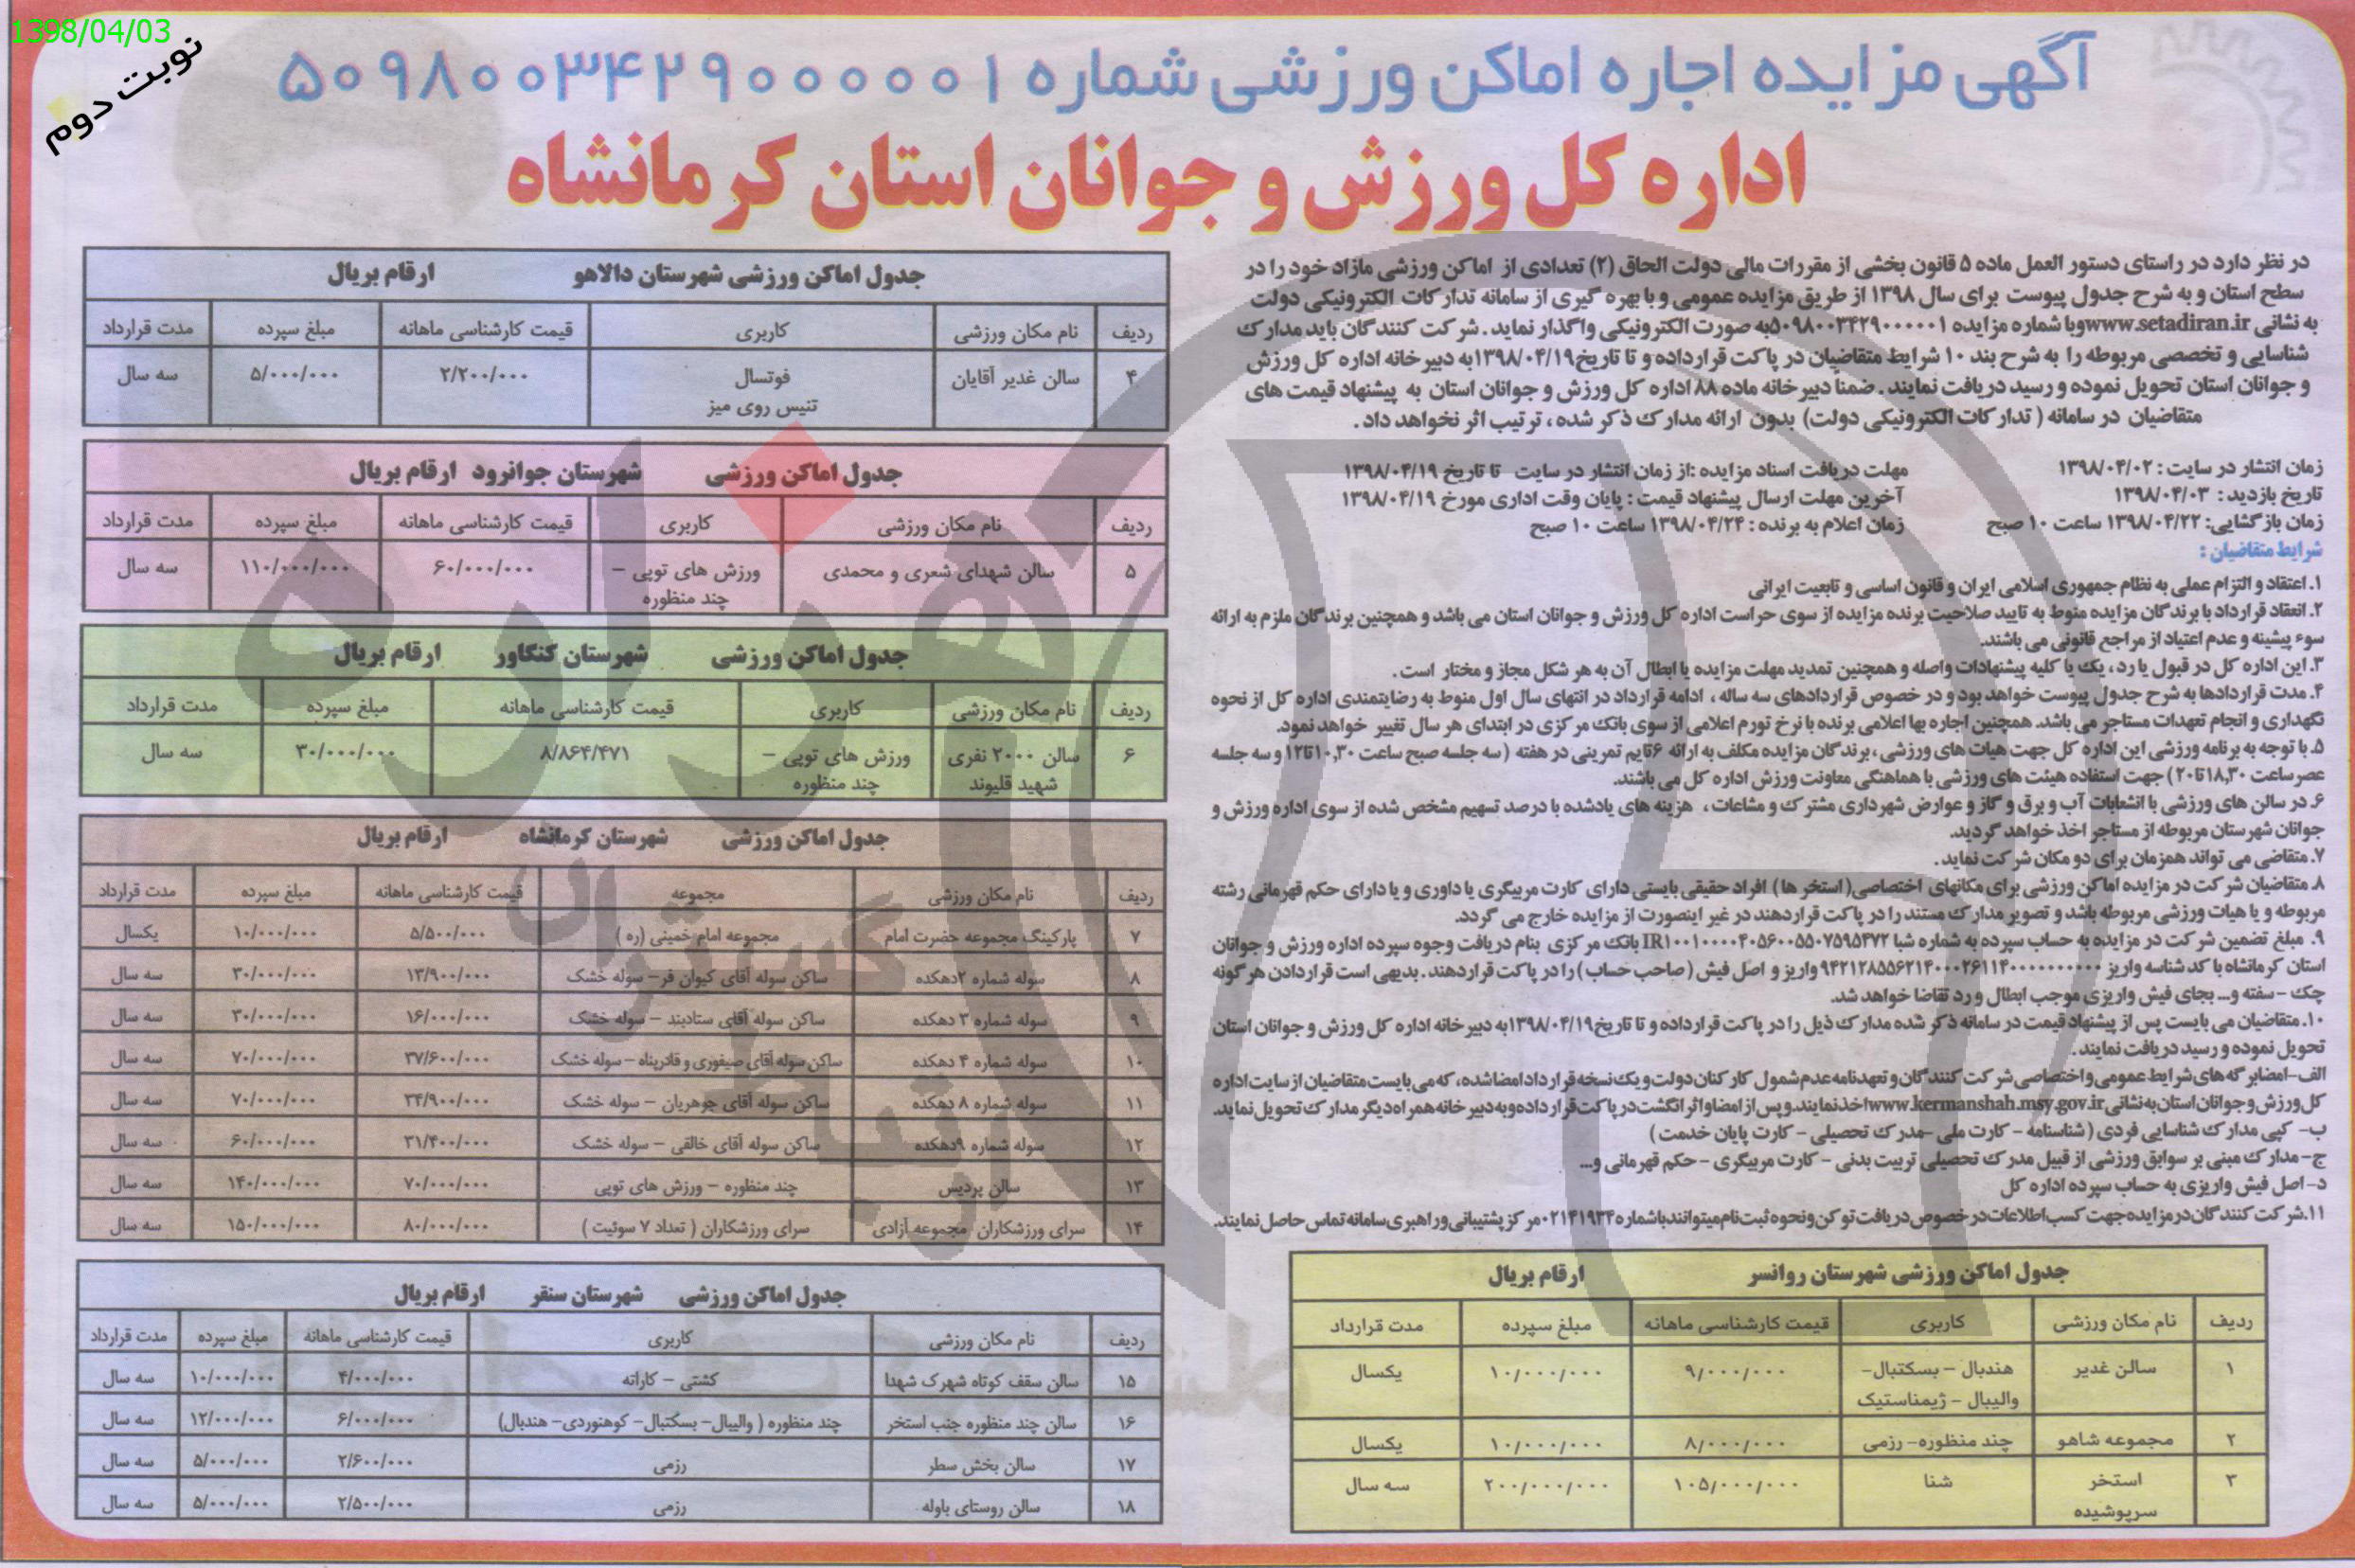 1398/04/03
نوبت دوم
آگهی مزایده اجاره اماکن ورزشی شماره ۵۰۹۸۰۰۳۴۲۹۰۰۰۰۰۱
اداره کل ورزش و جوانان استان کرمانشاه
در نظر دارد در راستای دستور العمل ماده ۵ قانون بخشی از مقررات مالی دولت الحاق (۲) تعدادی از اماکن ورزشی مازاد خود را در
سطح استان و به شرح جدول پیوست برای سال ۱۳۹۸ از طریق مزایده عمومی و با بهره گیری از سامانه تدارکات الکترونیکی دولت
به نشانی www.setadiran.ir وبا شماره مزایده ۵۰۹۸۰۰۳۴۲۹۰۰۰۰۰۱ به صورت الکترونیکی واگذار نماید. شرکت کنندگان باید مدارک
شناسایی و تخصصی مربوطه را به شرح بند ۱۰ شرایط متقاضیان در پاکت قرارداده و تا تاریخ ۱۳۹۸/۰۴/۱۹ به دبیرخانه اداره کل ورزش
و جوانان استان تحویل نموده و رسید دریافت نمایند. ضمناً دبیرخانه ماده ۸۸ اداره کل ورزش و جوانان استان به پیشنهاد قیمت های
متقاضیان در سامانه (تدارکات الکترونیکی دولت) بدون ارائه مدارک ذکر شده، ترتیب اثر نخواهد داد.
زمان انتشار در سایت: ۱۳۹۸/۰۴/۰۲ مهلت دریافت اسناد مزایده: از زمان انتشار در سایت تا تاریخ ۱۳۹۸/۰۴/۱۹
تاریخ بازدید: ۱۳۹۸/۰۴/۰۳ آخرین مهلت ارسال پیشنهاد قیمت: پایان وقت اداری مورخ ۱۳۹۸/۰۴/۱۹
زمان بازگشایی: ۱۳۹۸/۰۴/۲۲ ساعت ۱۰ صبح زمان اعلام به برنده: ۱۳۹۸/۰۴/۲۴ ساعت ۱۰ صبح
شرایط متقاضیان:
۱. اعتقاد و التزام عملی به نظام جمهوری اسلامی ایران و قانون اساسی و تابعیت ایرانی
۲. انعقاد قرارداد با برندگان مزایده منوط به تایید صلاحیت برنده مزایده از سوی حراست اداره کل ورزش و جوانان استان می باشد و همچنین برندگان ملزم به ارائه
سوء پیشینه و عدم اعتیاد از مراجع قانونی می باشند.
۳. این اداره کل در قبول یا رد، یک یا کلیه پیشنهادات واصله و همچنین تمدید مهلت مزایده یا ابطال آن به هر شکل مجاز و مختار است.
۴. مدت قراردادها به شرح جدول پیوست خواهد بود و در خصوص قراردادهای سه ساله، ادامه قرارداد در انتهای سال اول منوط به رضایتمندی اداره کل از نحوه
نگهداری و انجام تعهدات مستاجر می باشد. همچنین اجاره بها اعلامی برنده با نرخ تورم اعلامی از سوی بانک مرکزی در ابتدای هر سال تغییر خواهد نمود.
۵. با توجه به برنامه ورزشی این اداره کل جهت هیات های ورزشی، برندگان مزایده مکلف به ارائه ۶ تایم تمرینی در هفته (سه جلسه صبح ساعت ۱۰,۳۰ تا ۱۲ و سه جلسه
عصر ساعت ۱۸,۳۰ تا ۲۰) جهت استفاده هیئت های ورزشی با هماهنگی معاونت ورزش اداره کل می باشند.
۶. در سالن های ورزشی با انشعابات آب و برق و گاز و عوارض شهرداری مشترک و مشاعات، هزینه های یادشده با درصد تسهیم مشخص شده از سوی اداره ورزش و
جوانان شهرستان مربوطه از مستاجر اخذ خواهد گردید.
۷. متقاضی می تواند همزمان برای دو مکان شرکت نماید.
۸. متقاضیان شرکت در مزایده اماکن ورزشی برای مکانهای اختصاصی (استخر ها) افراد حقیقی بایستی دارای کارت مربیگری یا داوری و یا دارای حکم قهرمانی رشته
مربوطه و یا هیات ورزشی مربوطه باشد و تصویر مدارک مستند را در پاکت قراردهند در غیر اینصورت از مزایده خارج می گردد.
۹. مبلغ تضمین شرکت در مزایده به حساب سپرده به شماره شبا IR۱۰۰۱۰۰۰۰۴۰۵۶۰۰۵۵۰۷۵۹۵۴۷۲ بانک مرکزی بنام دریافت وجوه سپرده اداره ورزش و جوانان
استان کرمانشاه با کد شناسه واریز ۹۴۲۱۲۸۵۵۶۲۱۴۰۰۰۲۶۱۱۴۰۰۰۰۰۰۰۰۰۰ واریز و اصل فیش (صاحب حساب) را در پاکت قراردهند. بدیهی است قراردادن هر گونه
چک - سفته و... بجای فیش واریزی موجب ابطال و رد تقاضا خواهد شد.
۱۰. متقاضیان می بایست پس از پیشنهاد قیمت در سامانه ذکر شده مدارک ذیل را در پاکت قرارداده و تا تاریخ ۱۳۹۸/۰۴/۱۹ به دبیرخانه اداره کل ورزش و جوانان استان
تحویل نموده و رسید دریافت نمایند.
الف- امضا برگه های شرایط عمومی و اختصاصی شرکت کنندگان و تعهدنامه عدم شمول کارکنان دولت و یک نسخه قرارداد امضا شده، که می بایست متقاضیان از سایت اداره
کل ورزش و جوانان استان به نشانی www.kermanshah.msy.gov.ir اخذ نمایند. و پس از امضا و اثر انگشت در پاکت قرار داده و به دبیرخانه همراه دیگر مدارک تحویل نماید.
ب- کپی مدارک شناسایی فردی (شناسنامه - کارت ملی - مدرک تحصیلی - کارت پایان خدمت)
ج- مدارک مبنی بر سوابق ورزشی از قبیل مدرک تحصیلی تربیت بدنی - کارت مربیگری - حکم قهرمانی و...
د- اصل فیش واریزی به حساب سپرده اداره کل
۱۱. شرکت کنندگان در مزایده جهت کسب اطلاعات در خصوص دریافت توکن و نحوه ثبت نام میتوانند با شماره ۰۲۱۴۱۹۳۴ مرکز پشتیبانی و راهبری سامانه تماس حاصل نمایند.
جدول اماکن ورزشی شهرستان روانسر ارقام بریال
ردیف نام مکان ورزشی کاربری قیمت کارشناسی ماهانه مبلغ سپرده مدت قرارداد
۱ سالن غدیر هندبال - بسکتبال- ۹/۰۰۰/۰۰۰ ۱۰/۰۰۰/۰۰۰ یکسال
والیبال - ژیمناستیک
۲ مجموعه شاهو چند منظوره- رزمی ۸/۰۰۰/۰۰۰ ۱۰/۰۰۰/۰۰۰ یکسال
۳ استخر شنا ۱۰۵/۰۰۰/۰۰۰ ۲۰۰/۰۰۰/۰۰۰ سه سال
سرپوشیده
جدول اماکن ورزشی شهرستان دالاهو ارقام بریال
ردیف نام مکان ورزشی کاربری قیمت کارشناسی ماهانه مبلغ سپرده مدت قرارداد
۴ سالن غدیر آقایان فوتسال ۲/۲۰۰/۰۰۰ ۵/۰۰۰/۰۰۰ سه سال
تنیس روی میز
جدول اماکن ورزشی شهرستان جوانرود ارقام بریال
ردیف نام مکان ورزشی کاربری قیمت کارشناسی ماهانه مبلغ سپرده مدت قرارداد
۵ سالن شهدای شعری و محمدی ورزش های توپی - ۶۰/۰۰۰/۰۰۰ ۱۱۰/۰۰۰/۰۰۰ سه سال
چند منظوره
جدول اماکن ورزشی شهرستان کنگاور ارقام بریال
ردیف نام مکان ورزشی کاربری قیمت کارشناسی ماهانه مبلغ سپرده مدت قرارداد
۶ سالن ۲۰۰۰ نفری ورزش های توپی - ۸/۸۶۴/۴۷۱ ۳۰/۰۰۰/۰۰۰ سه سال
شهید قلیوند چند منظوره
جدول اماکن ورزشی شهرستان کرمانشاه ارقام بریال
ردیف نام مکان ورزشی مجموعه قیمت کارشناسی ماهانه مبلغ سپرده مدت قرارداد
۷ پارکینگ مجموعه حضرت امام مجموعه امام خمینی (ره) ۵/۵۰۰/۰۰۰ ۱۰/۰۰۰/۰۰۰ یکسال
۸ سوله شماره ۲دهکده ساکن سوله آقای کیوان فر- سوله خشک ۱۳/۹۰۰/۰۰۰ ۳۰/۰۰۰/۰۰۰ سه سال
۹ سوله شماره ۳ دهکده ساکن سوله آقای ستادیند - سوله خشک ۱۶/۰۰۰/۰۰۰ ۳۰/۰۰۰/۰۰۰ سه سال
۱۰ سوله شماره ۴ دهکده ساکن سوله آقای صیفوری و قادرپناه - سوله خشک ۳۷/۶۰۰/۰۰۰ ۷۰/۰۰۰/۰۰۰ سه سال
۱۱ سوله شماره ۸ دهکده ساکن سوله آقای جوهریان - سوله خشک ۳۴/۹۰۰/۰۰۰ ۷۰/۰۰۰/۰۰۰ سه سال
۱۲ سوله شماره ۹دهکده ساکن سوله آقای خالقی - سوله خشک ۳۱/۴۰۰/۰۰۰ ۶۰/۰۰۰/۰۰۰ سه سال
۱۳ سالن پردیس چند منظوره - ورزش های توپی ۷۰/۰۰۰/۰۰۰ ۱۴۰/۰۰۰/۰۰۰ سه سال
۱۴ سرای ورزشکاران مجموعه آزادی سرای ورزشکاران (تعداد ۷ سوئیت) ۸۰/۰۰۰/۰۰۰ ۱۵۰/۰۰۰/۰۰۰ سه سال
جدول اماکن ورزشی شهرستان سنقر ارقام بریال
ردیف نام مکان ورزشی کاربری قیمت کارشناسی ماهانه مبلغ سپرده مدت قرارداد
۱۵ سالن سقف کوتاه شهرک شهدا کشتی - کاراته ۴/۰۰۰/۰۰۰ ۱۰/۰۰۰/۰۰۰ سه سال
۱۶ سالن چند منظوره جنب استخر چند منظوره (والیبال- بسکتبال- کوهنوردی- هندبال) ۶/۰۰۰/۰۰۰ ۱۲/۰۰۰/۰۰۰ سه سال
۱۷ سالن بخش سطر رزمی ۲/۶۰۰/۰۰۰ ۵/۰۰۰/۰۰۰ سه سال
۱۸ سالن روستای باوله رزمی ۲/۵۰۰/۰۰۰ ۵/۰۰۰/۰۰۰ سه سال